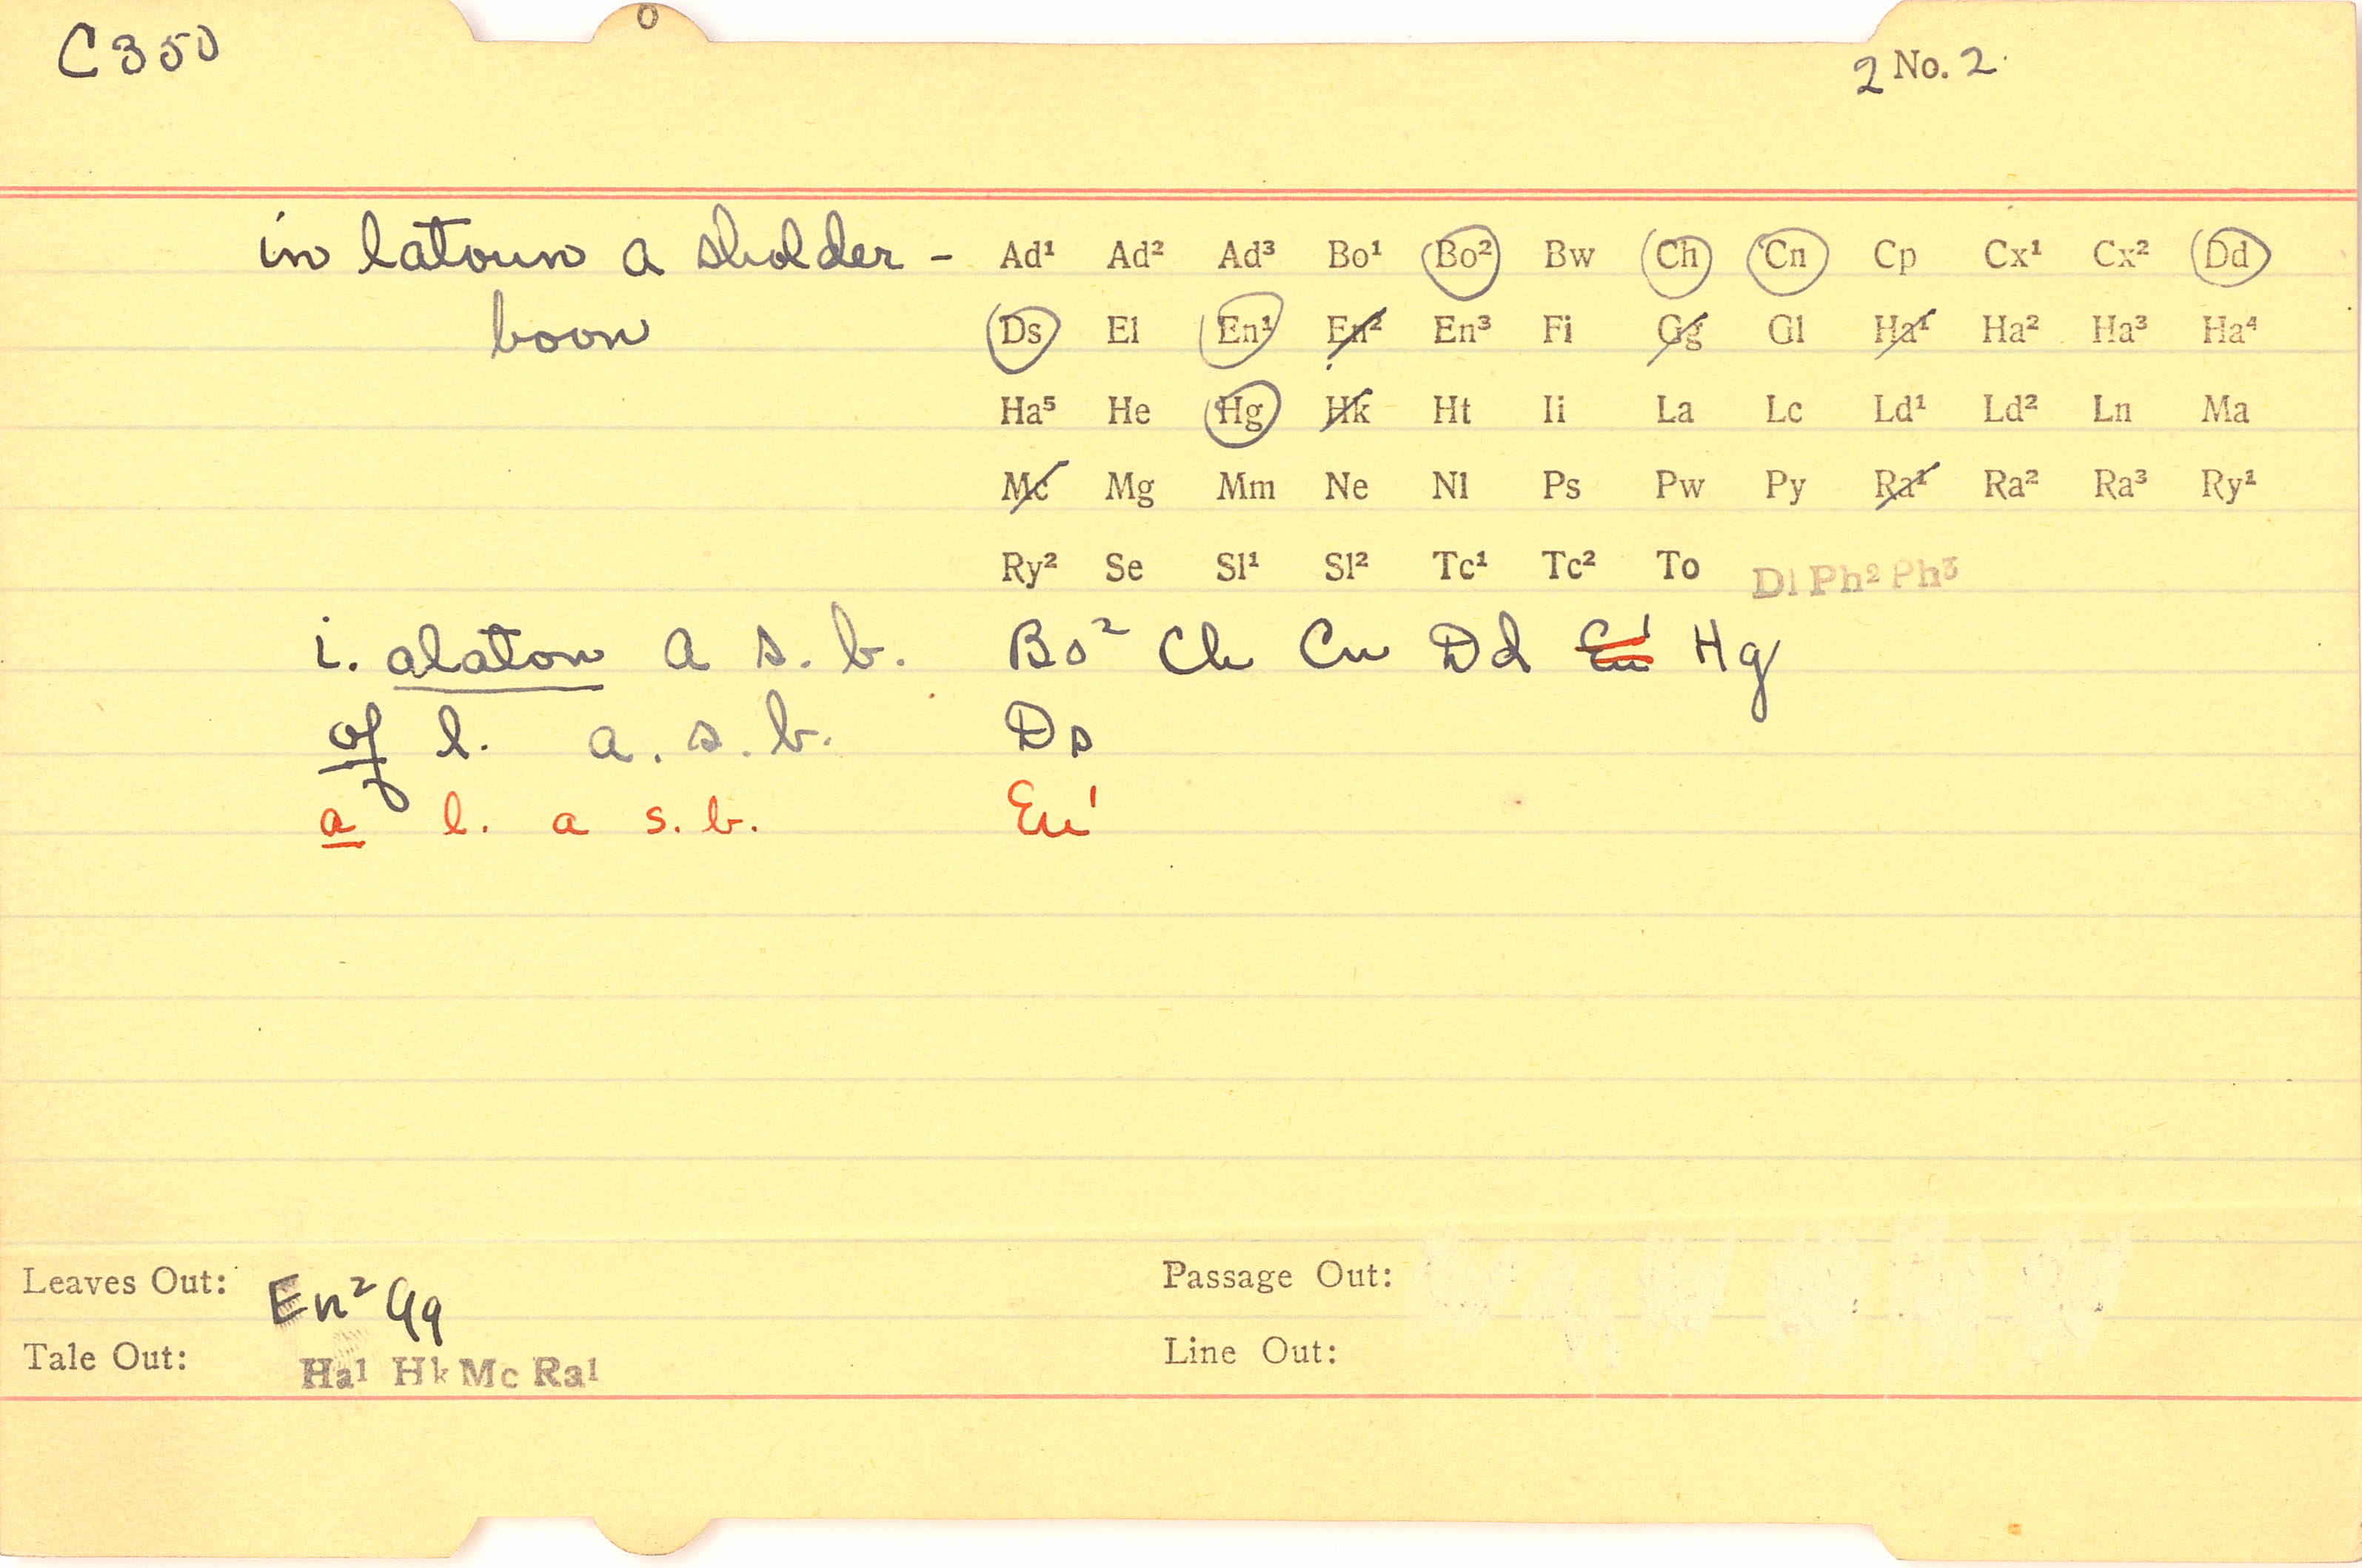 C350
2 No. 2
in latoun a sholder- Ad¹ Ad² Ad³ Bo¹ Bo² Bw Ch Cn Cp Cx¹ Cx² Dd
boon Ds El En¹ En² En³ Fi Gg Gl Ha¹ Ha² Ha³ Ha⁴
Ha⁵ He Hg Hk Ht Ii La Lc Ld¹ Ld² Ln Ma
Mc Mg Mm Ne Nl Ps Pw Py Ra¹ Ra² Ra³ Ry¹
Ry² Se Sl¹ Sl² Tc¹ Tc² To Dl Ph² Ph³
i. alaton a s. b. Bo² Ch Cn Dd En¹ Hg
of l. a. s. b. Ds
a l. a s. b. En¹
Leaves Out: En² Gg Passage Out:
Tale Out: Ha¹ Hk Mc Ra¹ Line Out: